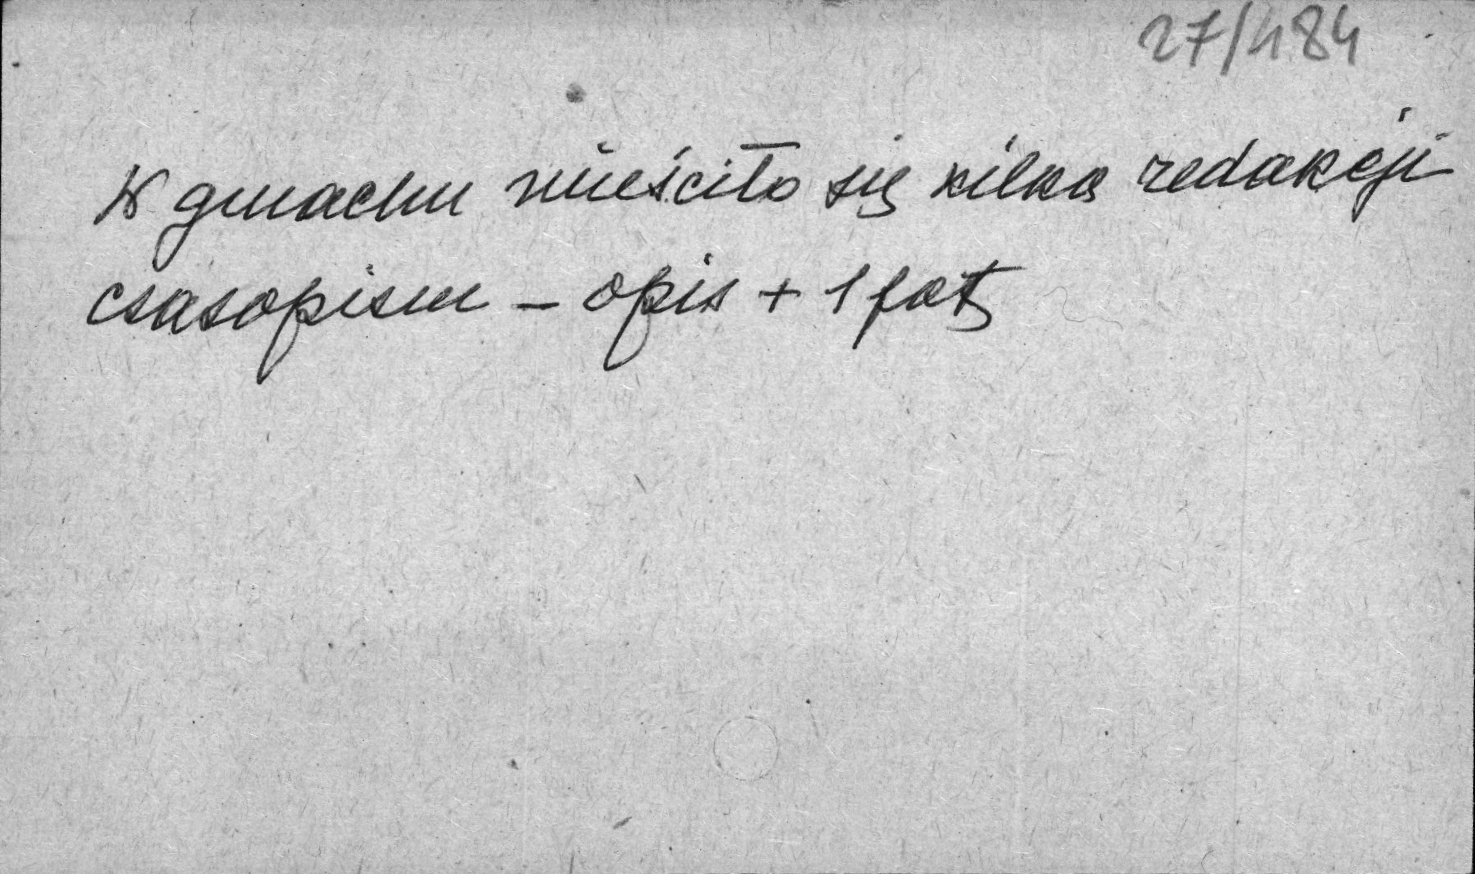 27/484
W gmachu mieściło się kilka redakcji
czasopism - opis + 1 fot